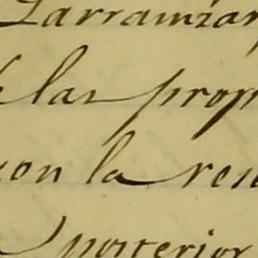 Larramzar
las prop
con la res
posterior